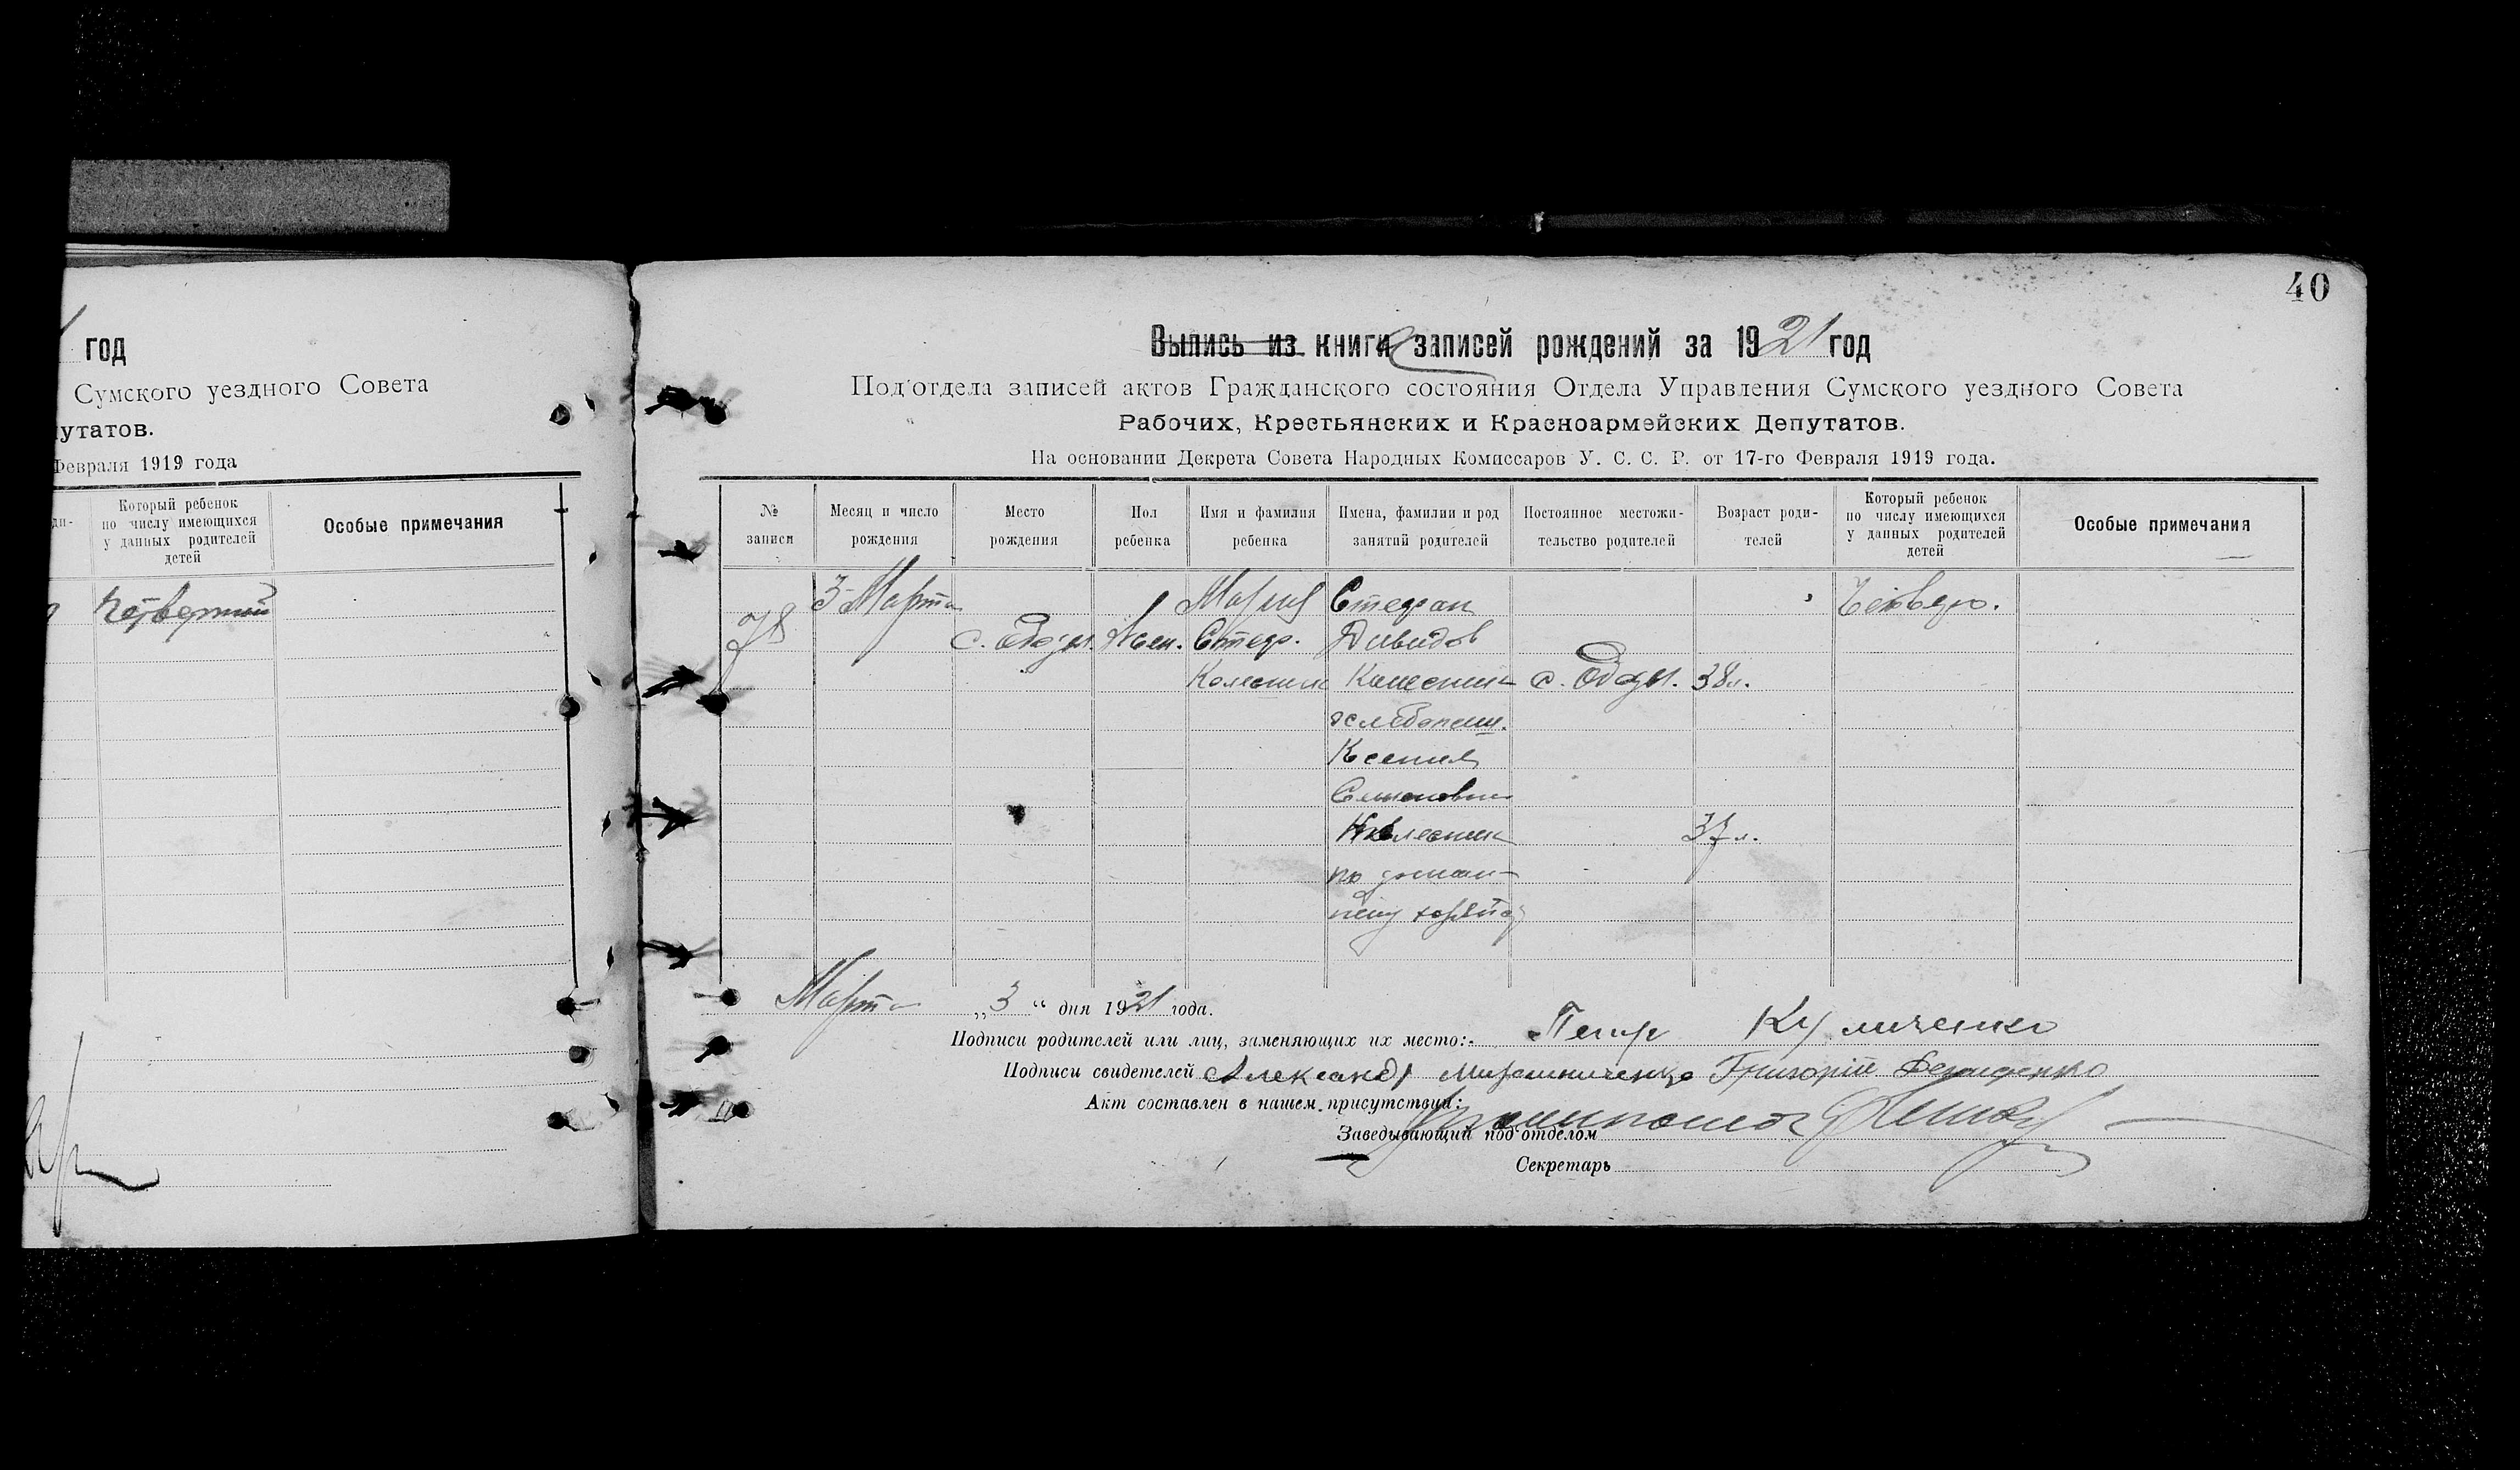 год
Сумского уездного Совета
утатов.
Февраля 1919 года
Который ребенок
по числу имеющихся
у данных родителей
детей
Особые примечания
Четвертый
40
Выпись из книга записей рождений за 1921 год
Под'отдела записей актов Гражданского состояния Отдела Управления Сумского уездного Совета
Рабочих, Крестьянских и Красноармейских Депутатов.
На основании Декрета Совета Народных Комиссаров У. С. С. Р. от 17-го Февраля 1919 года.
№
записи
Месяц и число
рождения
Место
рождения
Пол
ребенка
Имя и фамилия
ребенка
Имена, фамилии и род
занятий родителей
Постоянное местожи-
тельство родителей
Возраст роди-
телей
Который ребенок
по числу имеющихся
у данных родителей
детей
Особые примечания
78
3 Марта
с.
Жен.
Мария
Стеф.
Колесник
Стефан
Давидов
Колесник
хлебопаш.
Ксения
Семеновна
Колесник
по домаш-
нему
с.
38 л.
37 л.
Четверт.
Марта „3“ дня 1921 года.
Подписи родителей или лиц, заменяющих их место: Петр
Подписи свидетелей Александр Мирошниченко Григорій
Акт составлен в нашем присутствии:
Заведывающий под'отделом
Секретарь